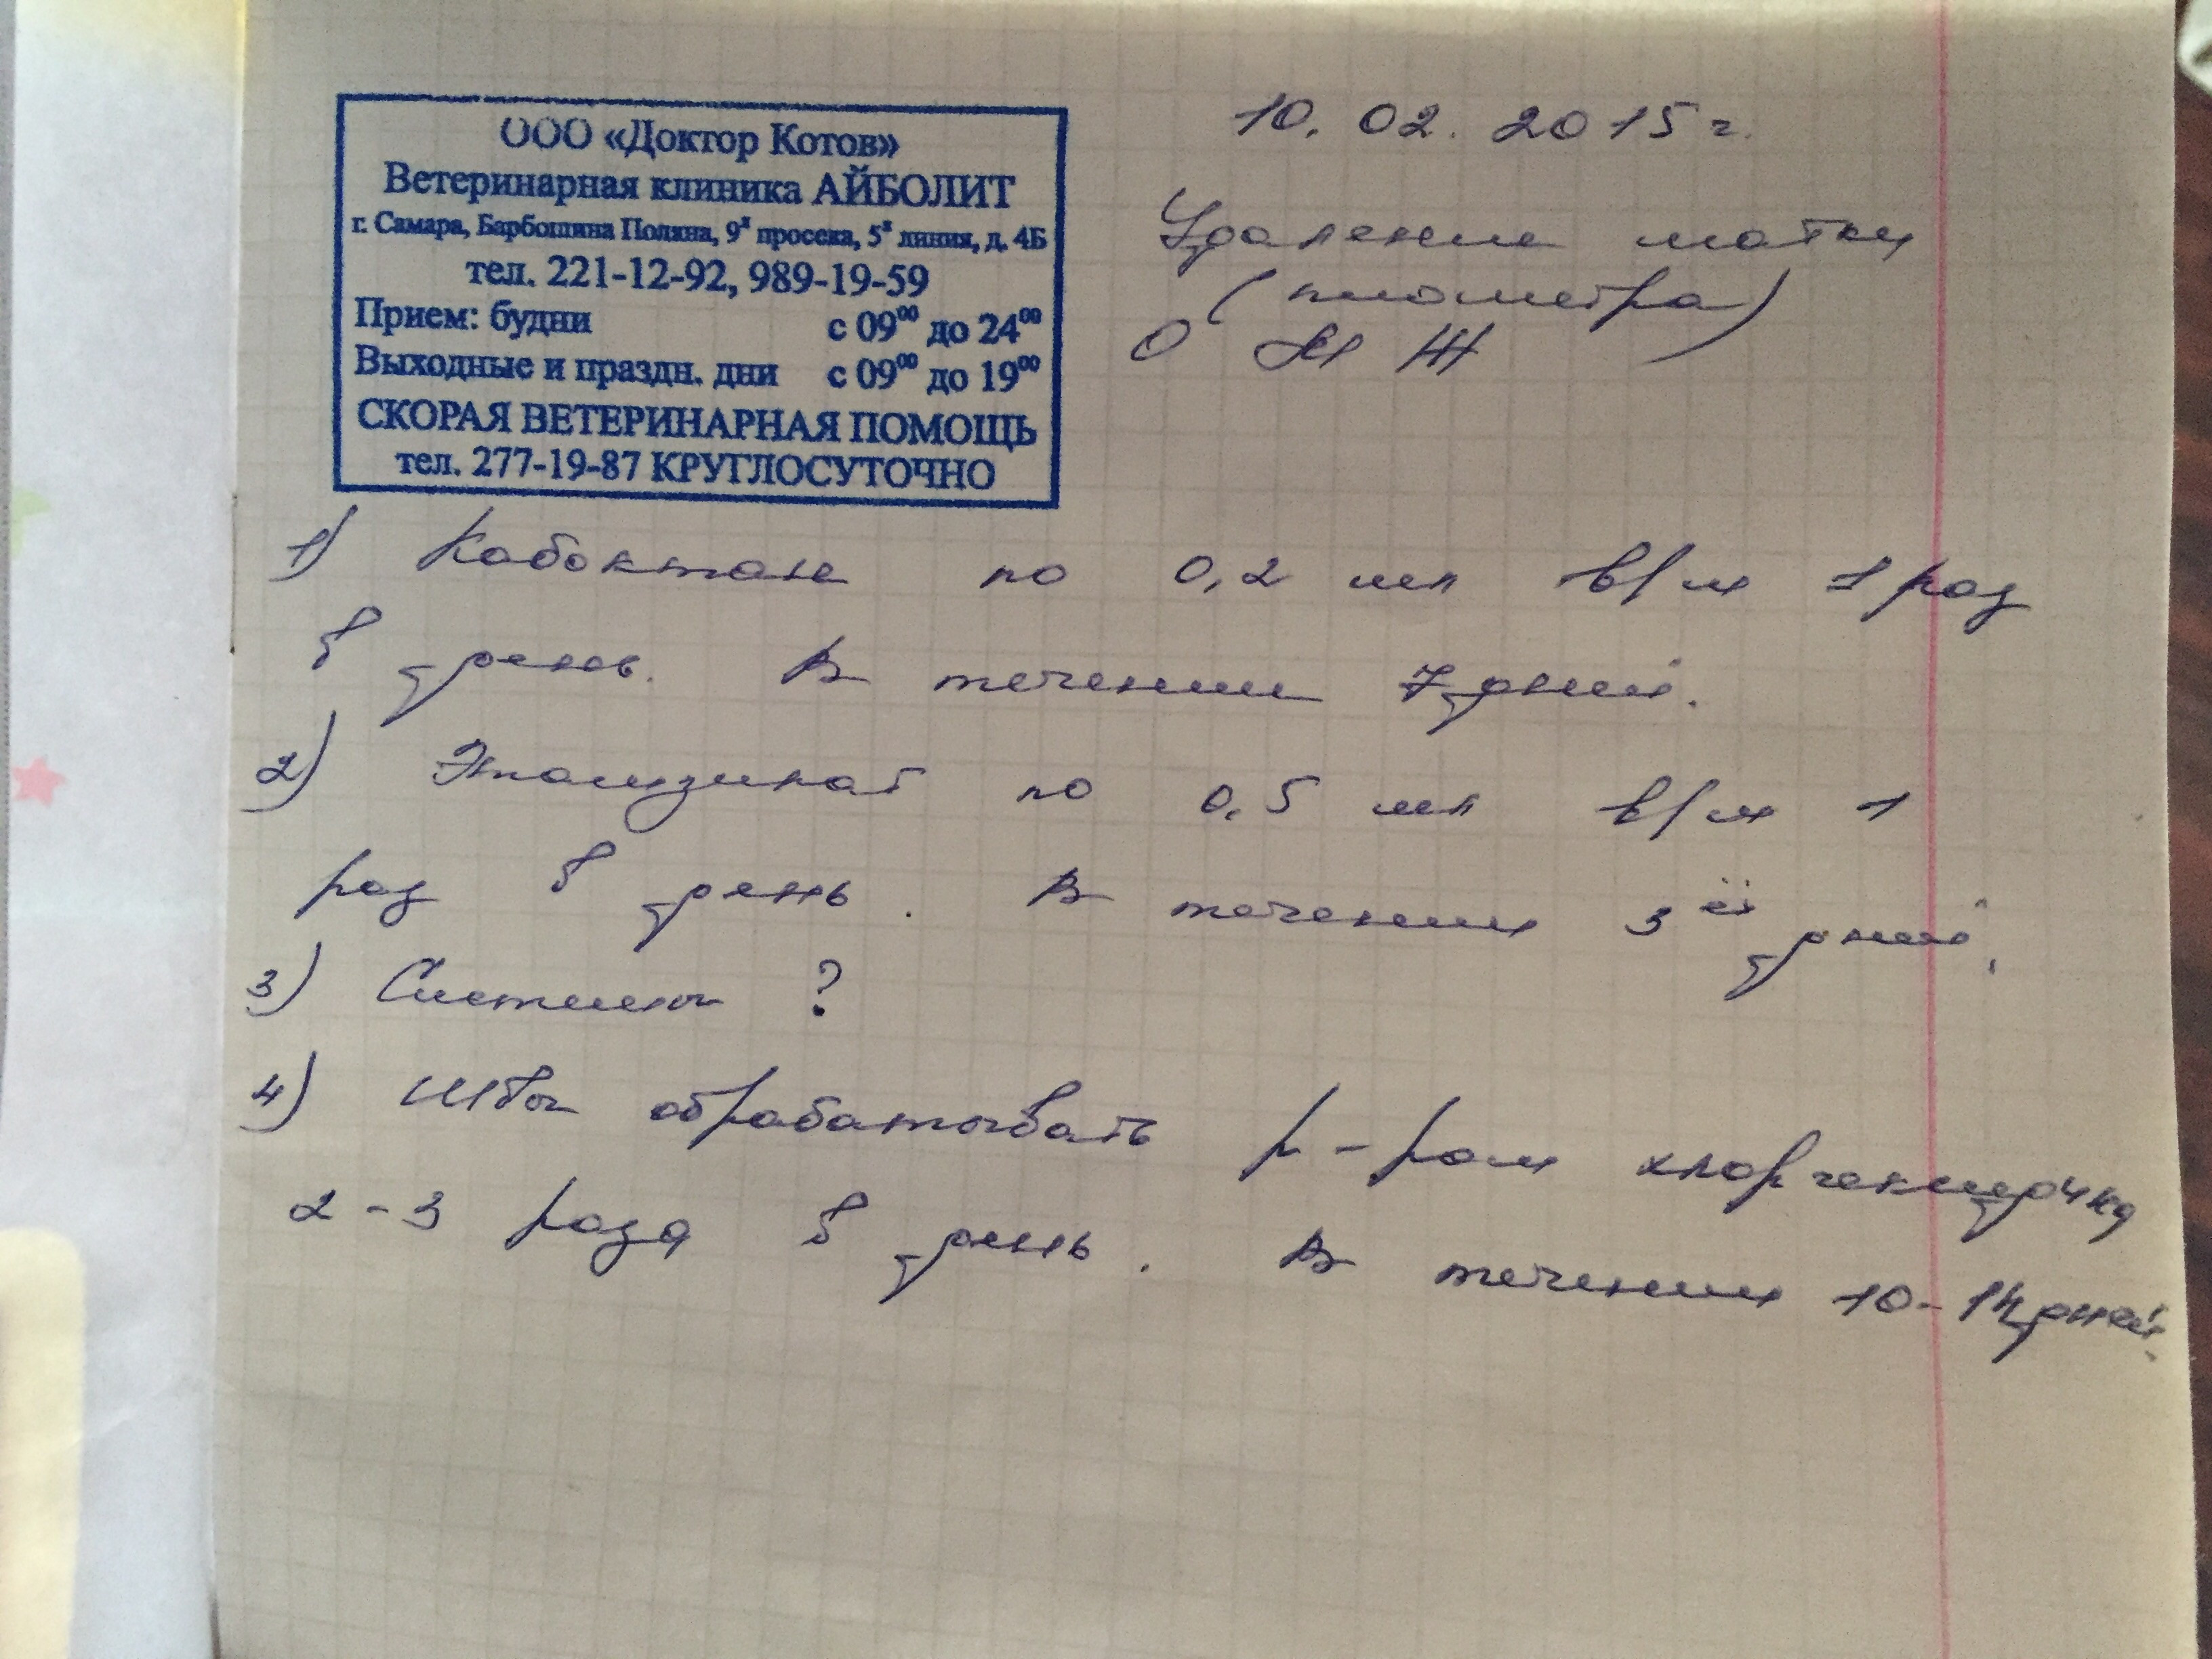 ООО «Доктор Котов»
Ветеринарная клиника АЙБОЛИТ
г. Самара, Барбошина Поляна, 9я просека, 5я линия, д. 4Б
тел. 221-12-92, 989-19-59
Прием: будни с 09⁰⁰ до 24⁰⁰
Выходные и праздн. дни с 09⁰⁰ до 19⁰⁰
СКОРАЯ ВЕТЕРИНАРНАЯ ПОМОЩЬ
тел. 277-19-87 КРУГЛОСУТОЧНО
10.02.2015 г.
Удаление матки
(пиометра)
1) Кобактан по 0,2 мл в/м 1 раз
в день. В течении 7 дней.
2) Этамзилат по 0,5 мл в/м 1
раз в день. В течении 3ёх дней.
3) Системы ?
4) Швы обрабатывать р-ром хлоргексидина
2-3 раза в день. В течении 10-14 дней.